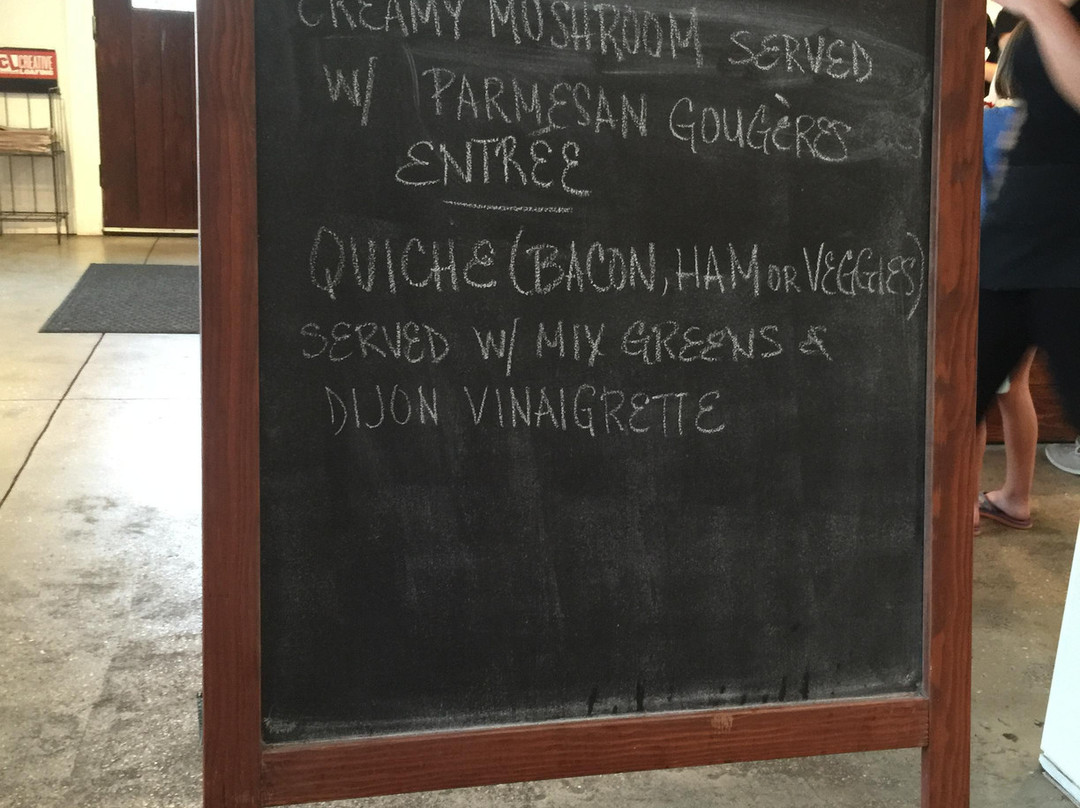 CL CREATIVE
LOAFING
CREAMY MUSHROOM SERVED
W/ PARMESAN GOUGÈRES
ENTRÉE
QUICHE (BACON, HAM OR VEGGIES)
SERVED W/ MIX GREENS &
DIJON VINAIGRETTE